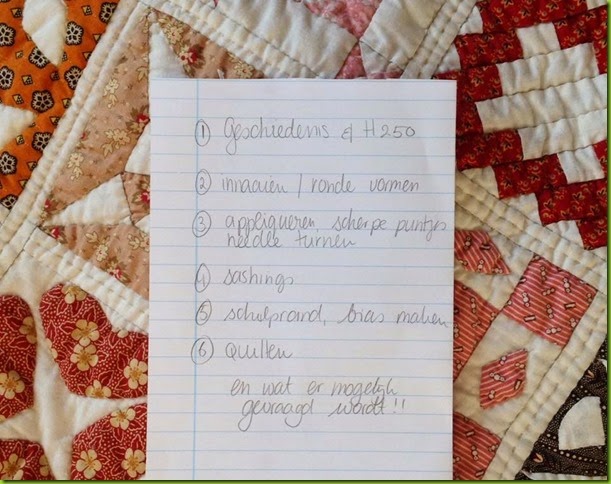 ① Geschiedenis & H250
② innaaien / ronde vormen
③ appliqueren, scherpe puntjes
needle turnen
④ sashings
⑤ schulprand, bias maken
⑥ Quilten
en wat er mogelijk
gevraagd wordt!!